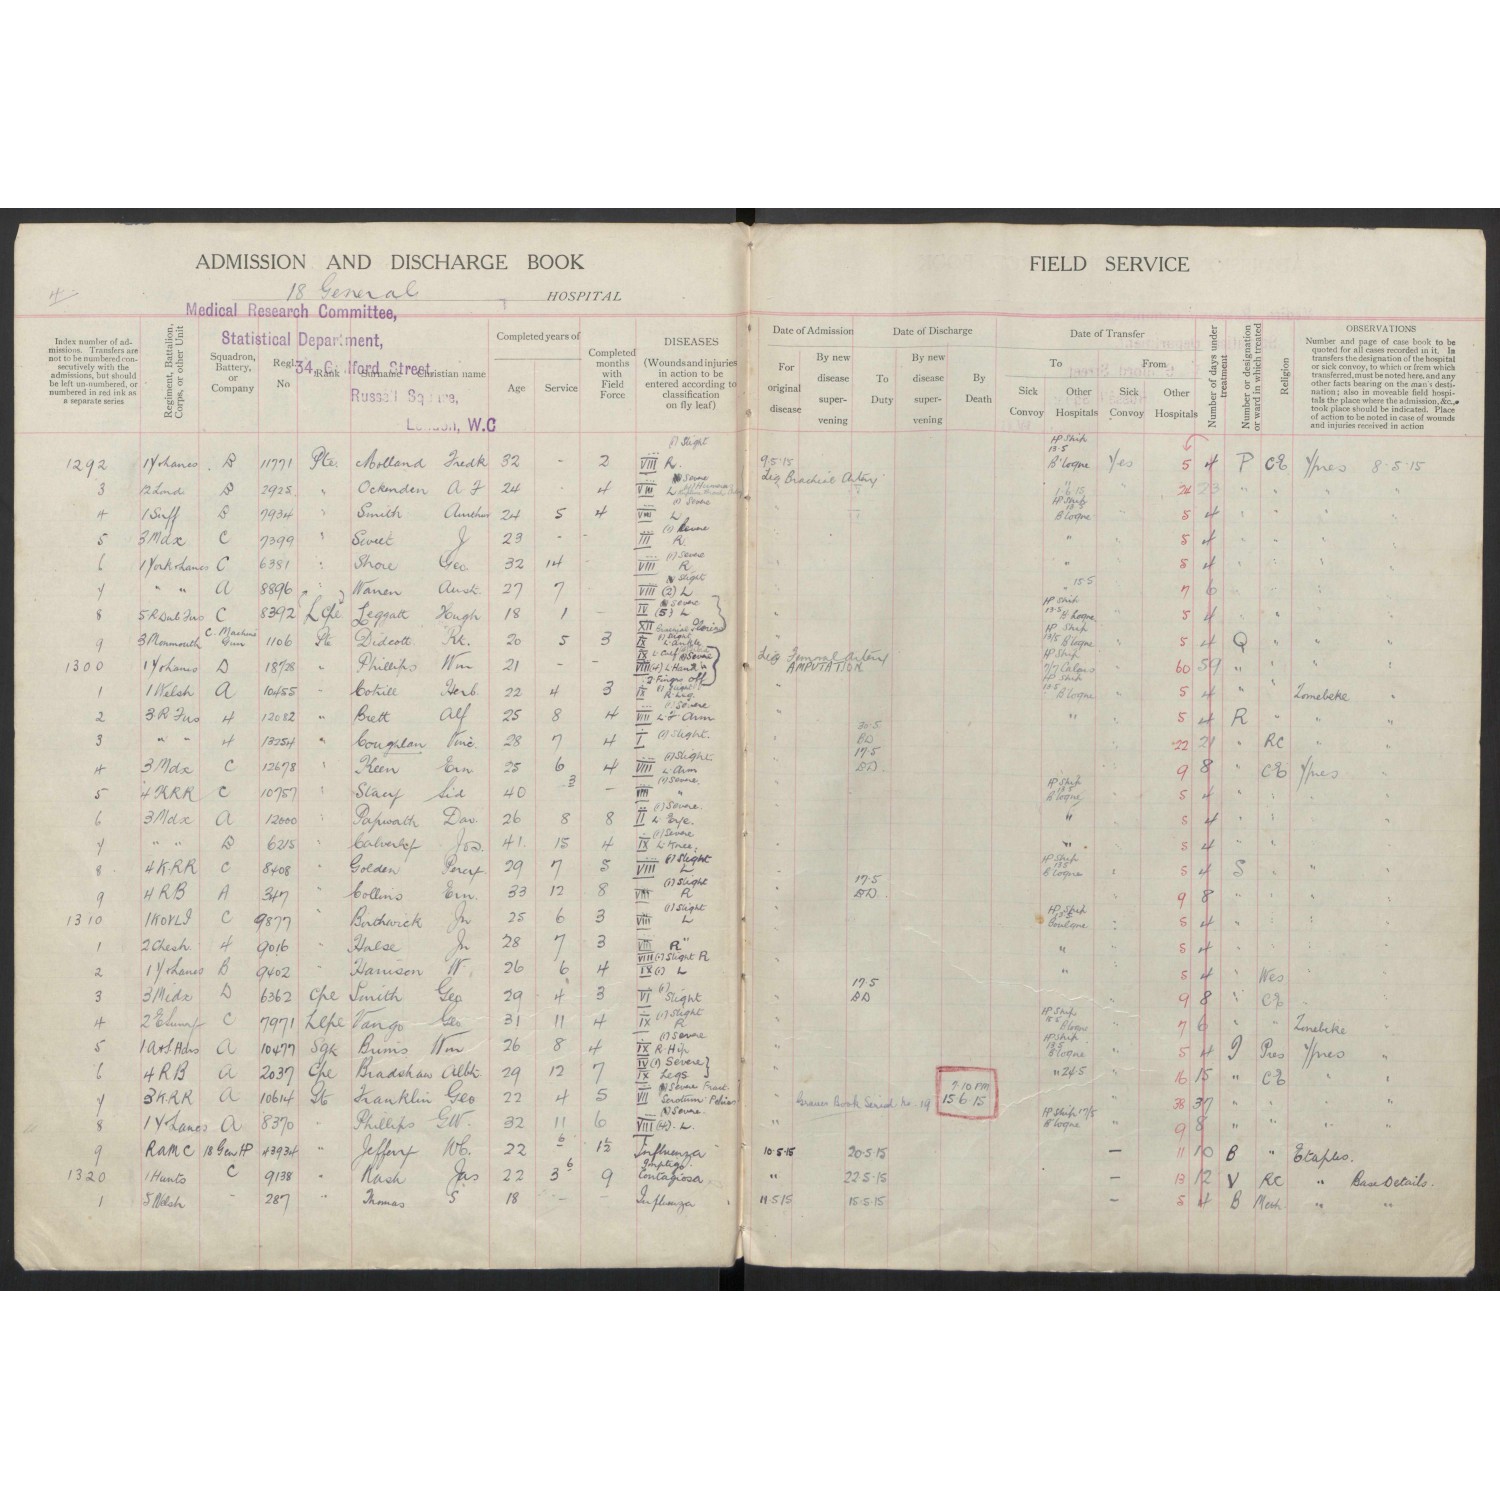 ADMISSION AND DISCHARGE BOOK
18 General HOSPITAL
Medical Research Committee,
Statistical Department,
Russell Square,
London, W.C
Index number of ad-
missions. Transfers are
not to be numbered con-
secutively with the
admissions, but should
be left un-numbered, or
numbered in red ink as
a separate series
Regiment, Battalion,
Corps, or other Unit
Squadron,
Battery,
or
Company
Regl.
No
Rank
Surname
Christian name
Completed years of
Age
Service
Completed
months
with
Field
Force
DISEASES
(Wounds and injuries
in action to be
entered according to
classification
on fly leaf)
FIELD SERVICE
Date of Admission
For
original
disease
By new
disease
super-
vening
Date of Discharge
To
Duty
By new
disease
super-
vening
By
Death
Date of Transfer
To
Sick
Convoy
Other
Hospitals
From
Sick
Convoy
Other
Hospitals
Number of days under
treatment
Number or designation
or ward in which treated
Religion
OBSERVATIONS
Number and page of case book to be
quoted for all cases recorded in it. In
transfers the designation of the hospital
or sick convoy, to which or from which
transferred, must be noted here, and any
other facts bearing on the man's desti-
nation; also in moveable field hospi-
tals the place where the admission, &c.,
took place should be indicated. Place
of action to be noted in case of wounds
and injuries received in action
1292 B 11771 Pte. Molland Fredk 32 - 2 VIII R. (1) Slight 9.5.15 HP Ship 13.5 B'logne Yes 5 4 P CE Ypres 8.5.15
3 B 2925 " Ockenden A F 24 - 4 VIII L Severe Lig Brachial Artery 24 23 " "
4 1 Suff B 7934 " Smith 24 5 4 VIII L (1) Severe HP Ship 13.5 B'logne 5 4 " "
5 3 Mdx C 7399 " Sweet J 23 - - III R (1) Severe " 5 4
6 C 6381 " Shore Geo 32 14 - VIII R (1) Severe " 5 4
7 " " A 8896 Warren 27 7 VIII (2) L Slight 15.5 7 6
8 C 8392 LCpl Leggatt Hugh 18 1 - IV (5) L Severe HP Ship 13.5 B'logne 5 4
9 3 Monmouth C. Machine Gun 1106 Pte Didcott Rt. 20 5 3 IX L Ankle (1) Slight HP Ship 13/5 B'logne 5 4 Q
1300 D " Phillips Wm 21 - - VIII (4) L Hand 2 Fingers off Lig Femoral Artery AMPUTATION HP Ship 7/7 Calais 60 59 "
1 1 Welsh A 10455 " Herb. 22 4 3 IX R. Leg HP Ship 13.5 B'logne 5 4 " " Zonebeke
2 3 R Fus 4 12082 " Brett Alf 25 8 4 VIII L F Arm (1) Severe " 5 4 R " "
3 " " 4 13254 " Coughlan Vinc. 28 7 4 I (1) Slight. 30.5 BD 22 21 " RC "
4 3 Mdx C 12678 " Keen Ern 25 6 4 VIII L Arm (1) Slight. 17.5 BD 9 8 " CE Ypres
5 4 KRR C 10757 " Sid 40 3 - VIII " (1) Severe. HP Ship 13.5 B'logne 5 4
6 3 Mdx A 12000 " Papworth Dav. 26 8 8 II L Eye. (1) Severe. " 5 4
7 " " B 6215 " Jos. 41. 15 4 IX L Knee. (1) Severe " 5 4
8 4 K.RR C 8408 " Golden Percy 29 7 5 VIII L (1) Slight HP Ship 13.5 B'logne 5 4 S
9 4 RB A 347 " Collins Ern. 33 12 8 VIII R (1) Slight 17.5 BD 9 8
1310 1 KOYLI C 9877 " Borthwick Jn 25 6 3 VIII L (1) Slight HP Ship 13.5 Boulogne 5 4
1 2 Chesh. 4 9016 " Halse Jn 28 7 3 VIII R " " 5 4
2 B 9402 " Harrison W. 26 6 4 VIII (1) Slight R IX (1) L " 5 4 " Wes
3 3 Midx D 6362 Cpl Smith Geo 29 4 3 VI (1) Slight 17.5 BD 9 8 " CE
4 C 7971 LCpl Vango Geo 31 11 4 IX R (1) Slight HP Ship 15.5 B'logne 7 6 " " Zonebeke
5 A 10477 Sgt Wm 26 8 4 IX R. Hip (1) Severe HP Ship 13.5 B'logne 5 4 Pres Ypres "
6 4 RB A 2037 Cpl Bradshaw Albt. 29 12 7 IV (1) Severe IX Legs " 24.5 16 15 " CE " "
7 3 K.RR A 10614 Pte Franklin Geo 22 4 5 VII Severe Fract. Scrotum Pelvis Graves Book Serial. no. 19 7.10 PM 15.6.15 38 37 " " "
8 A 8370 " Phillips G.W. 32 11 6 VIII (4). L. Severe. HP Ship 17/5 B'logne 9 8 " " " "
9 RAMC 18 Gen HP 43934 " Jeffery 22 6 1½ Influenza 10.5.15 20.5.15 - 11 10 B " Etaples.
1320 1 Hants C 9138 " Nash Jas 22 3 6 9 Impetigo Contagiosa " 22.5.15 - 13 12 V RC " Base Details.
1 5 Welsh - 287 " Thomas S 18 - - Influenza 11.5.15 15.5.15 - 5 4 B Meth. " "